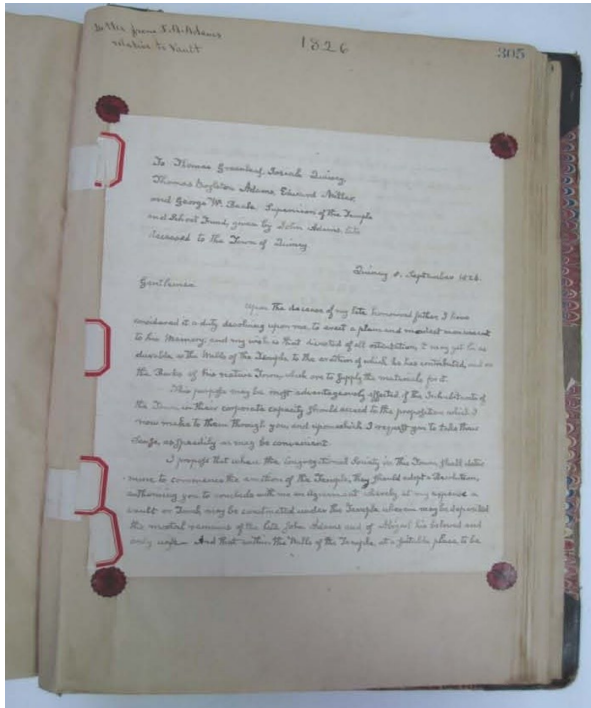 Letter from J. Q. Adams
relative to Vault
1826
305
To Thomas Greenleaf, Josiah Quincy,
Thomas Boylston Adams, Edward Miller,
and George W. Beale, Supervisors of the Temple
and School Fund, given by John Adams, late
deceased to the Town of Quincy
Quincy 8. September 1826.
Gentlemen
Upon the decease of my late honoured father, I have
considered it a duty devolving upon me, to erect a plain and modest monument
to his Memory; and my wish is that divested of all ostentation, it may yet be as
durable as the Walls of the Temple, to the erection of which he has contributed, and as
the Rocks of his native Town, which are to supply the materials for it.
This purpose may be most advantageously effected if the Inhabitants of
the Town in their corporate capacity should accede to the proposition which I
now make to them through you and upon which I request you to take their
sense, as speedily as may be convenient.
I propose that when the Congregational Society in this Town shall deter-
mine to commence the erection of the Temple, they should adopt a Resolution,
authorising you to conclude with me an Agreement whereby at my expence a
vault or Tomb may be constructed under the Temple wherein may be deposited
the mortal remains of the late John Adams and of Abigail his beloved and
only wife. And that within the Walls of the Temple, at a suitable place, to be